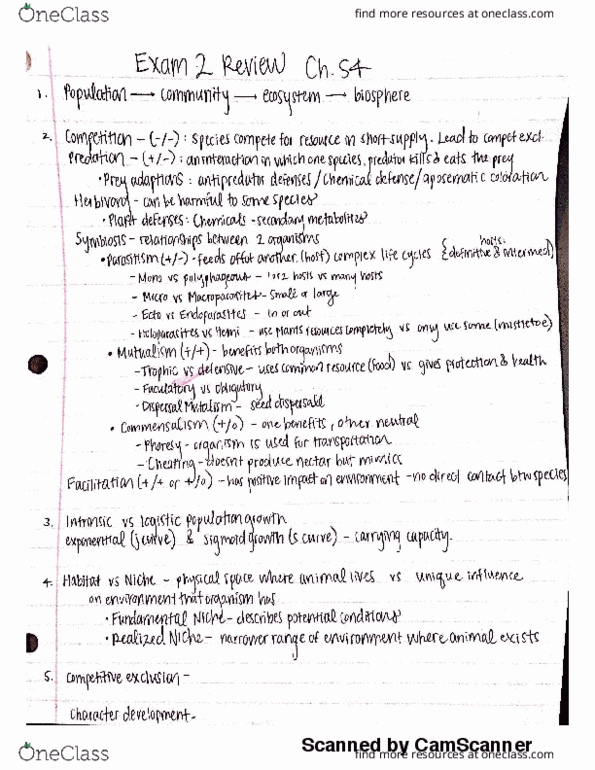 OneClass
find more resources at oneclass.com
Exam 2 Review Ch. 54
1. Population → community → ecosystem → biosphere
2. Competition – (-/-) : species compete for resource in short supply. Lead to compet excl.
Predation – (+/-) : an interaction in which one species, predator kills & eats the prey
• Prey adaptions : antipredator defenses / chemical defense / aposematic coloration
Herbivory - can be harmful to some species
• Plant defenses : Chemicals - secondary metabolites
Symbiosis - relationships between 2 organisms
• Parasitism (+/-) - feeds off of another (host) complex life cycles { hosts: definitive & intermed }
- Mono vs polyphageout - 1 or 2 hosts vs many hosts
- Micro vs Macroparasites - small or large
- Ecto vs Endoparasites - in or out
- Holoparasites vs Hemi - use plants resources completely vs only use some (mistletoe)
• Mutualism (+/+) - benefits both organisms
- Trophic vs defensive - uses common resource (food) vs gives protection & health
- Facultatory vs obligatory
- Dispersal Mutalism - seed dispersal
• Commensalism (+/0) - one benefits, other neutral
- Phoresy - organism is used for transportation
- Cheating - doesnt produce nectar but mimics
Facilitation (+/+ or +/0) - has positive impact on environment - no direct contact btw species
3. Intrinsic vs logistic population growth
exponential (j curve) & sigmoid growth (s curve) - carrying capacity.
4. Habitat vs Niche - physical space where animal lives vs unique influence
on environment that organism has
• Fundamental Niche - describes potential conditions
• Realized Niche - narrower range of environment where animal exists
5. Competitive exclusion -
Character development -
Scanned by CamScanner
OneClass
find more resources at oneclass.com